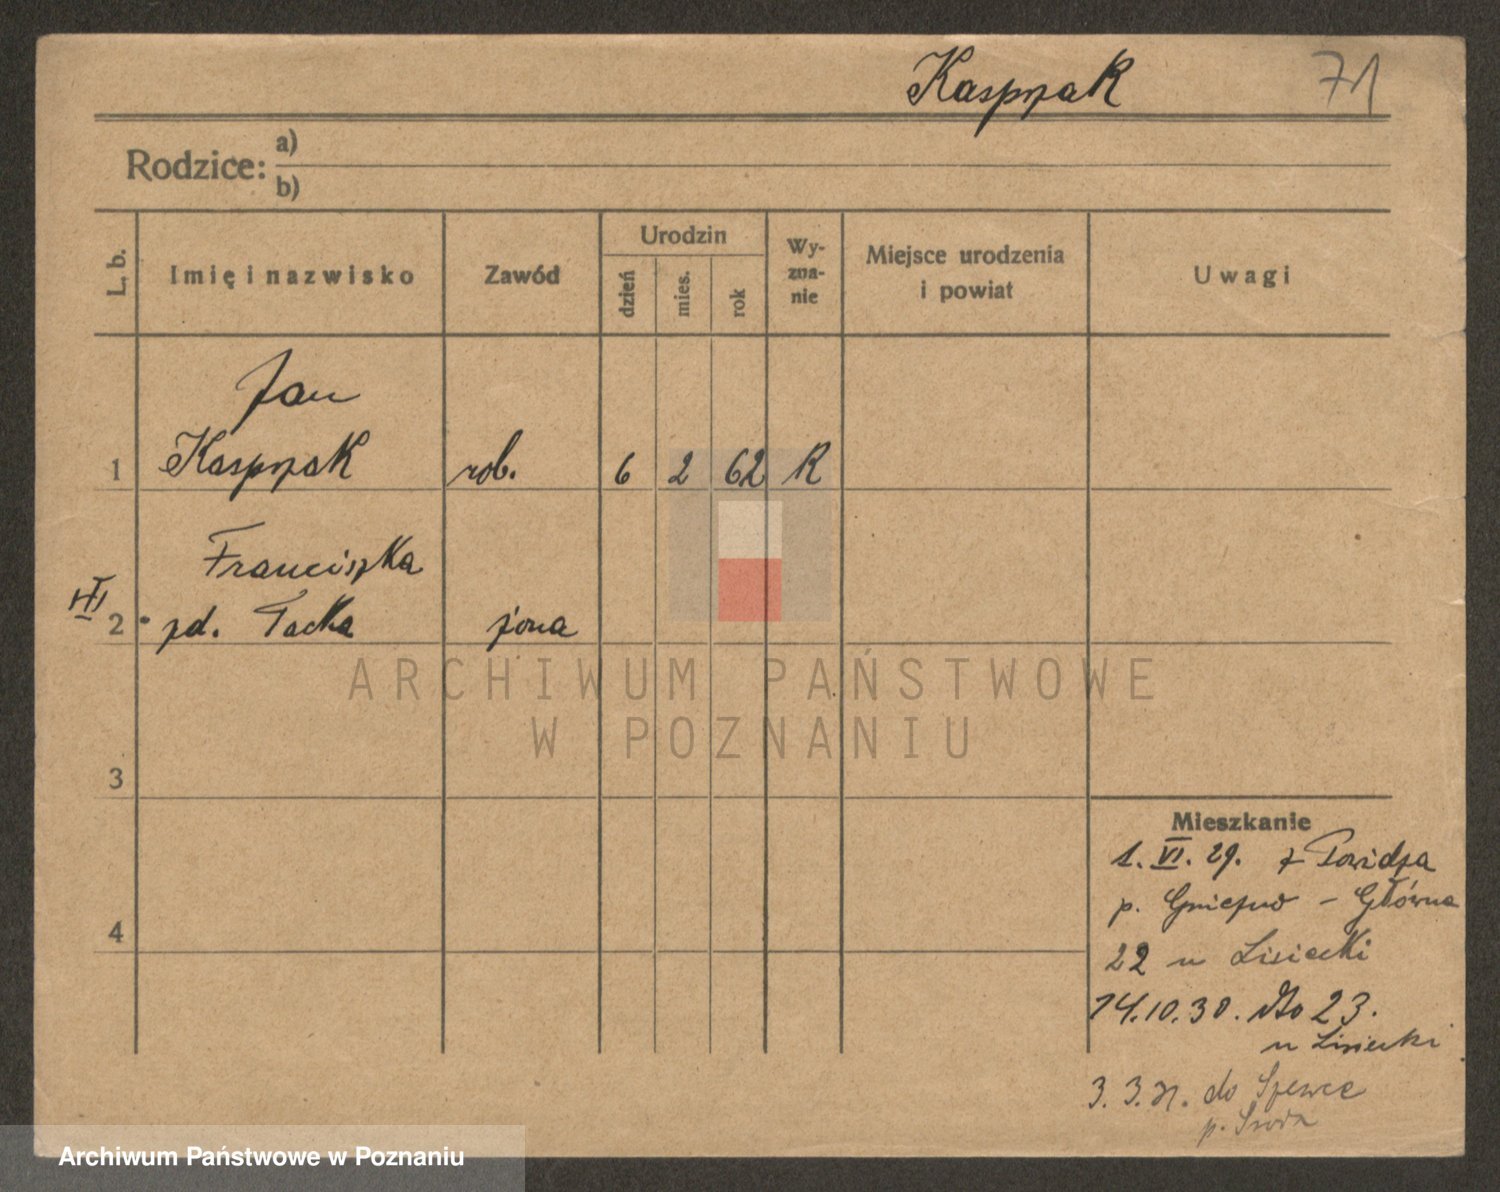 Kasprzak 71
Rodzice: a)
b)
L. b.
Imię i nazwisko
Zawód
Urodzin
dzień
mies.
rok
Wy-
zna-
nie
Miejsce urodzenia
i powiat
Uwagi
Jan
1 Kasprzak rob. 6 2 62 R
Franciszka
2 zd. Tacka żona
3
4
Mieszkanie
1. VI. 29. z Powidza
p. Gniezno - Główna
22 u Lisiecki
14.10.30. 23.
u Lisiecki
3. 3. 31. do Szewce
p. Środa
ARCHIWUM PAŃSTWOWE
W POZNANIU
Archiwum Państwowe w Poznaniu